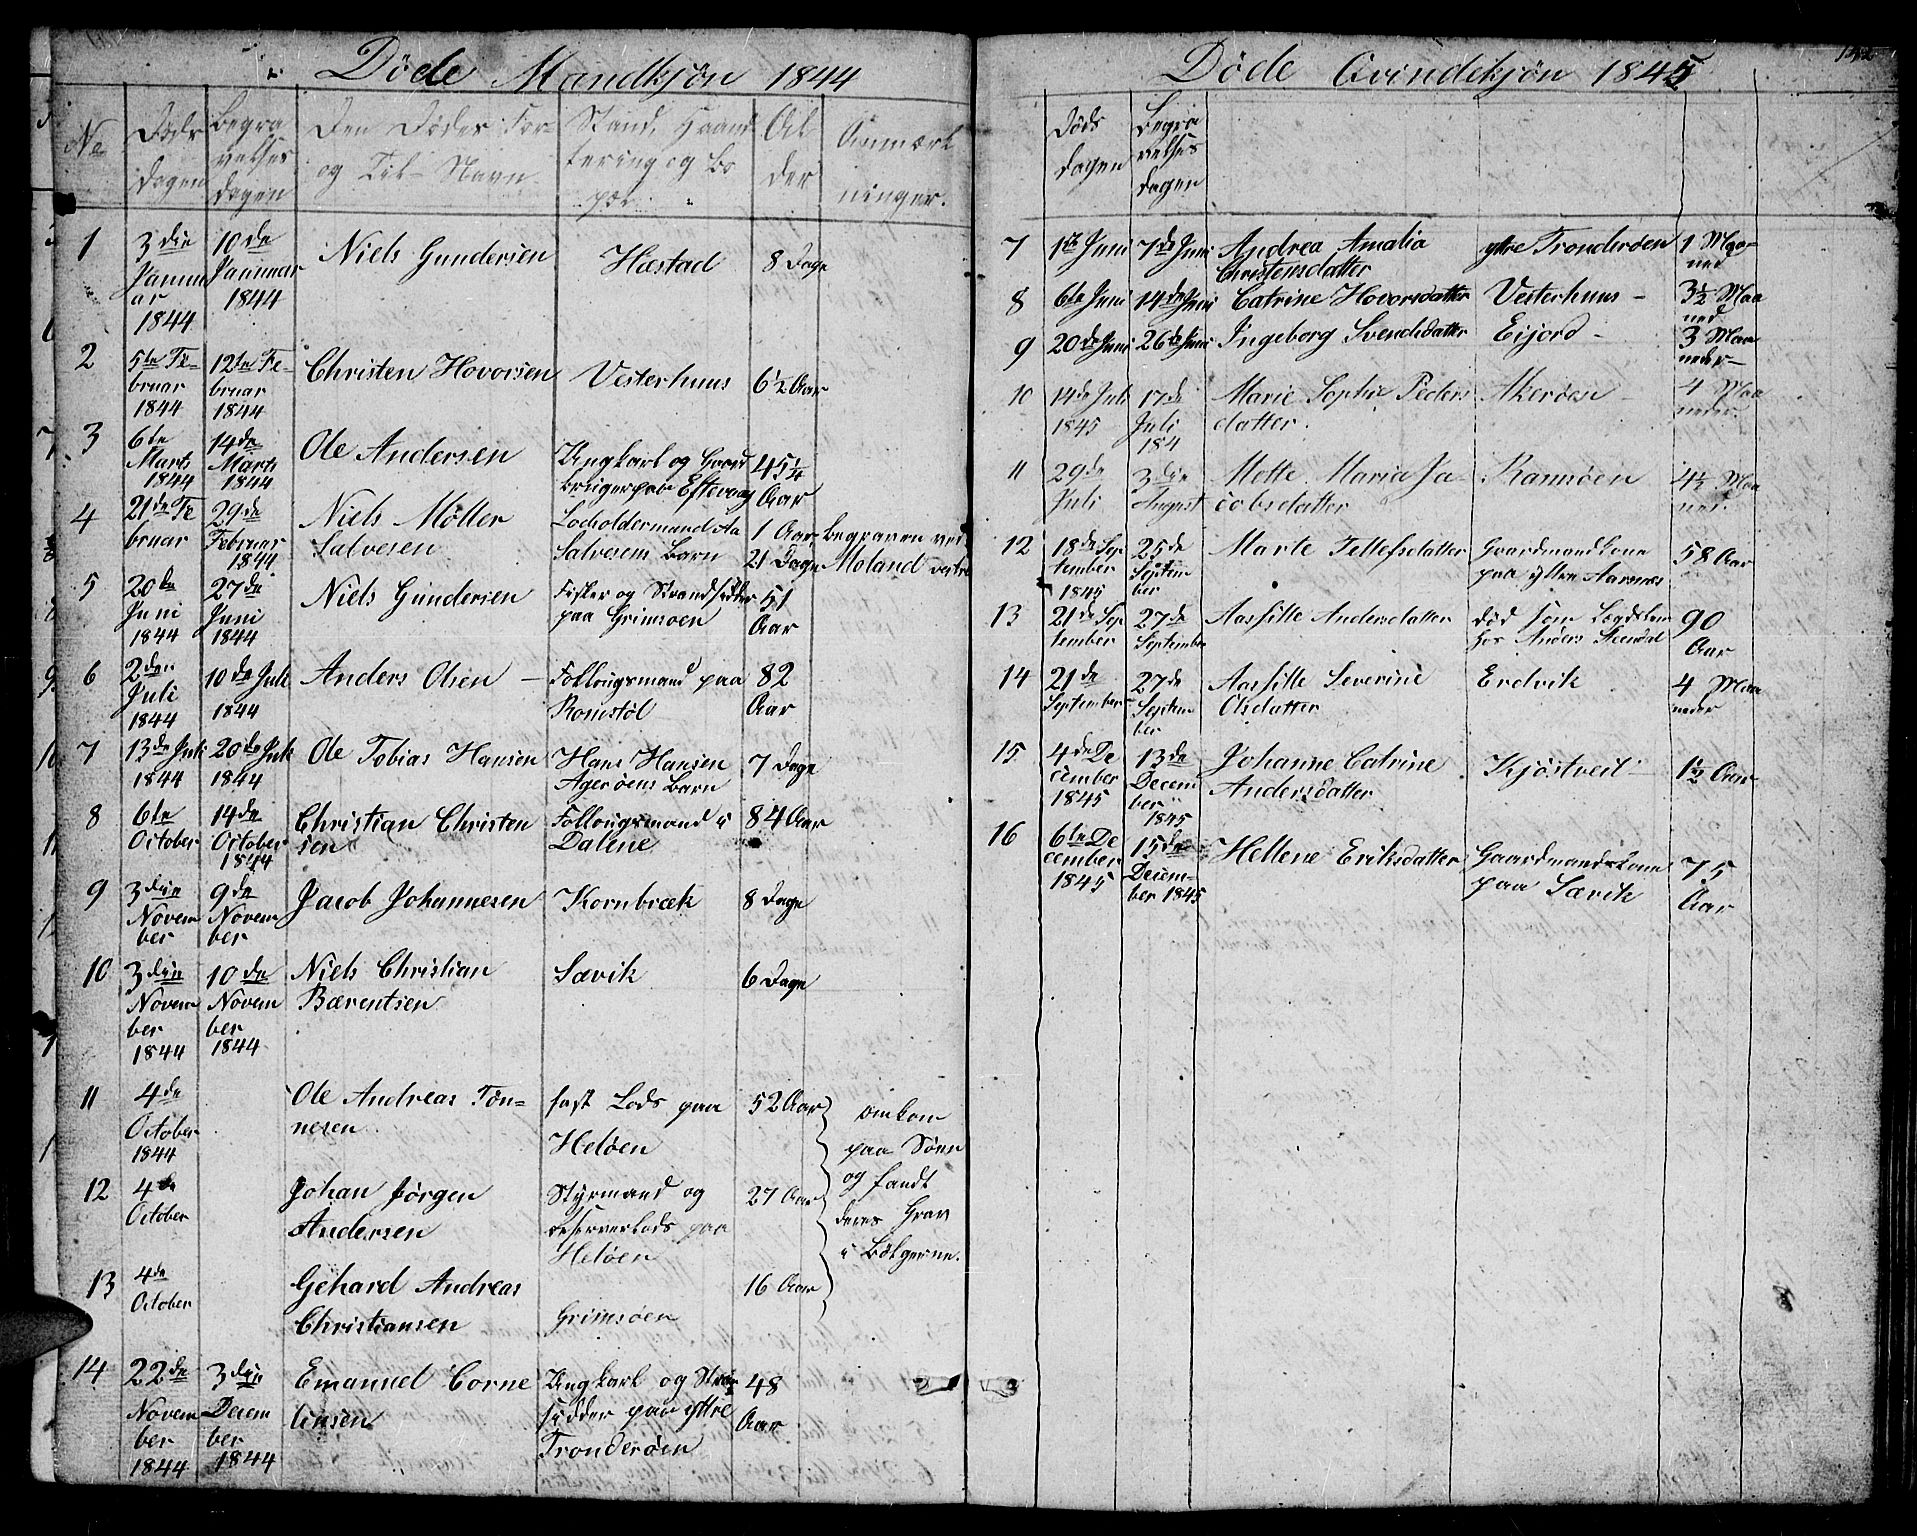 Døde Mandkjøn 1844
No
Døds
Dagen
Begra
velses
Dagen
Den Dødes For-
og Til-Navn
Stand, Haand
tering og Bo
pæl
Al
der
Anmærk
ninger.
1
3die
Januu
ar
1844
10de
Januuar
1844
Niels Gundersen
Hæstad
8 Dage
2
5te Fe-
bruar
1844
12te Fe-
bruar
1844
Christen Hovorsen
Vesterhuus
6½ Aar
3
6te
Marts
1844
14de
Marts
1844
Ole Andersen
Ungkarl og Gaard
bruger paa Eftevaag
45¼
Aar
4
21de Fe
bruar
29de
Februar
1844
Niels Møller
Salvesen
Lodsoldermand Aa
Salvesens Barn
1 Aar
21 Dage
begraven ved
Moland vestre
5
20de
Juni
1844
27de
Juni
1844
Niels Gundersen
Fisker og Strandsidder
paa Grimsøen
51
Aar
6
2den
Juli
1844
10de Juli
1844
Anders Olsen
Follougsmand paa
Romstøl
82
Aar
7
13de Juli
1844
20de Juli
1844
Ole Tobias Hansen
Hans Hansen
Agerøens Barn
7 Dage
8
6te
October
14de
October
1844
Christian Christen
sen
Follougsmand i
Dalene
84 Aar
9
3die
Novem
ber
9de
Novem
ber
Jacob Johannesen
Kornbræk
8 Dage
10
3die
Novem
ber
1844
10de
Novem
ber
1844
Niels Christian
Bærentsen
Sævik
6 Dage
11
4de
October
1844
Ole Andreas Tøn-
nesen
fast Lods paa
Heløen
52 Aar
omkom
paa Søen
og fandt
deres Grav
i Bølgerne.
12
4de
October
Johan Jørgen
Andersen
Styrmand og
reserverlods paa
Heløen
27 Aar
13
4de
October
Gehard Andreas
Christiansen
Grimsøen
16 Aar
14
22de
Novem
ber
1844
3die
Decem
ber
1844
Emanuel Corne
liusen
Ungkarl og Stran
sidder paa yttre
Tronderøen
48
Aar
Døde Qvindekjøn 1845
Døds
dagen
Begra
velses
dagen
7
1ste Juni
7de Juni
Andrea Amalia
Christensdatter
yttre Tronderøen
1 Maa-
ned
8
6te Juni
14de Juni
Catrine Hovorsdatter
Vesterhuus
3½ Maa
ned
9
20de Juni
26de Juni
Ingeborg Svendsdatter
Eijord
3 Maa
neder
10
14de Juli
1845
17de
Juli
184
Marie Sophie Peders
datter
Akerøen
4 Maa
neder
11
29de
Juli
3die
August
Mette Maria Ja-
cobsdatter
Ramsøen
4½ Maa
ned.
12
18de Sep
tember
1845
25de
Septem
ber
Marte Tellefsdatter
Gaardmandkone
paa yttre Aarsnes
58 Aar
13
21de Sep
tember
27de
September
Aasille Andersdatter
død som Lægdslem
hos Anders
90
Aar
14
21de
September
27de
Septem
ber
Aasille Severine
Olsdatter
Erdvik
4 Maa
neder
15
4de De
cember
1845
13de
Decem
ber
1845
Johanne Catrine
Andersdatter
Kjøstveit
1½ Aar
16
6te De
cember
1845
15de
Decem-
ber 1845
Hellene Eriksdatter
Gaardmandskone
paa Sævik
75
Aar